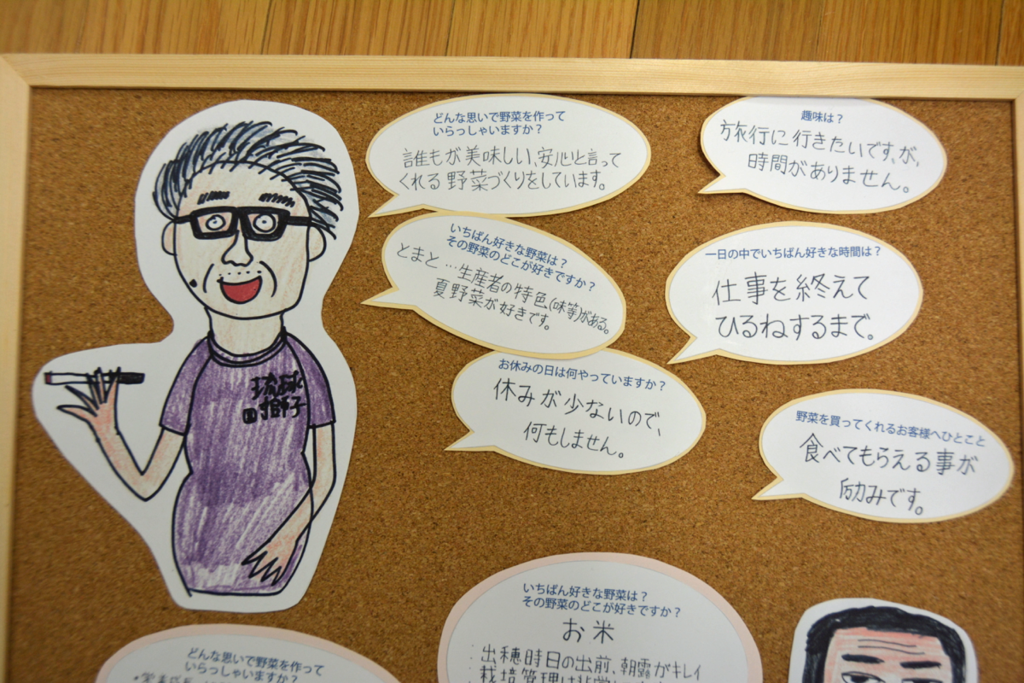 どんな思いで野菜を作って
いらっしゃいますか？
誰もが美味しい、安心と言って
くれる野菜づくりをしています。
趣味は？
旅行に行きたいですが、
時間がありません。
いちばん好きな野菜は？
その野菜のどこが好きですか？
とまと…生産者の特色(味等)がある。
夏野菜が好きです。
一日の中でいちばん好きな時間は？
仕事を終えて
ひるねするまで。
お休みの日は何やっていますか？
休みが少ないので、
何もしません。
野菜を買ってくれるお客様へひとこと
食べてもらえる事が
励みです。
琉球
獅子
どんな思いで野菜を作って
いらっしゃいますか？
いちばん好きな野菜は？
その野菜のどこが好きですか？
お米
出穂時日の出前、朝露がキレイ
栽培管理は